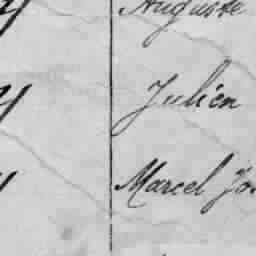 Auguste
Julien
Marcel